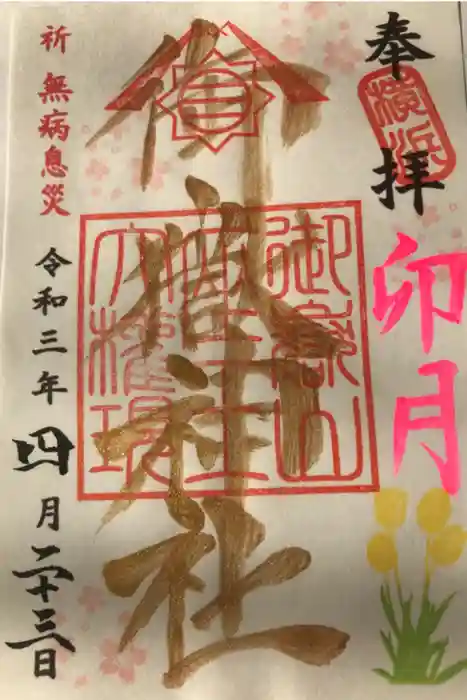 奉拝
横浜
卯月
御嶽神社
御嶽山
蔵王
大権現
祈 無病息災
令和三年四月二十三日